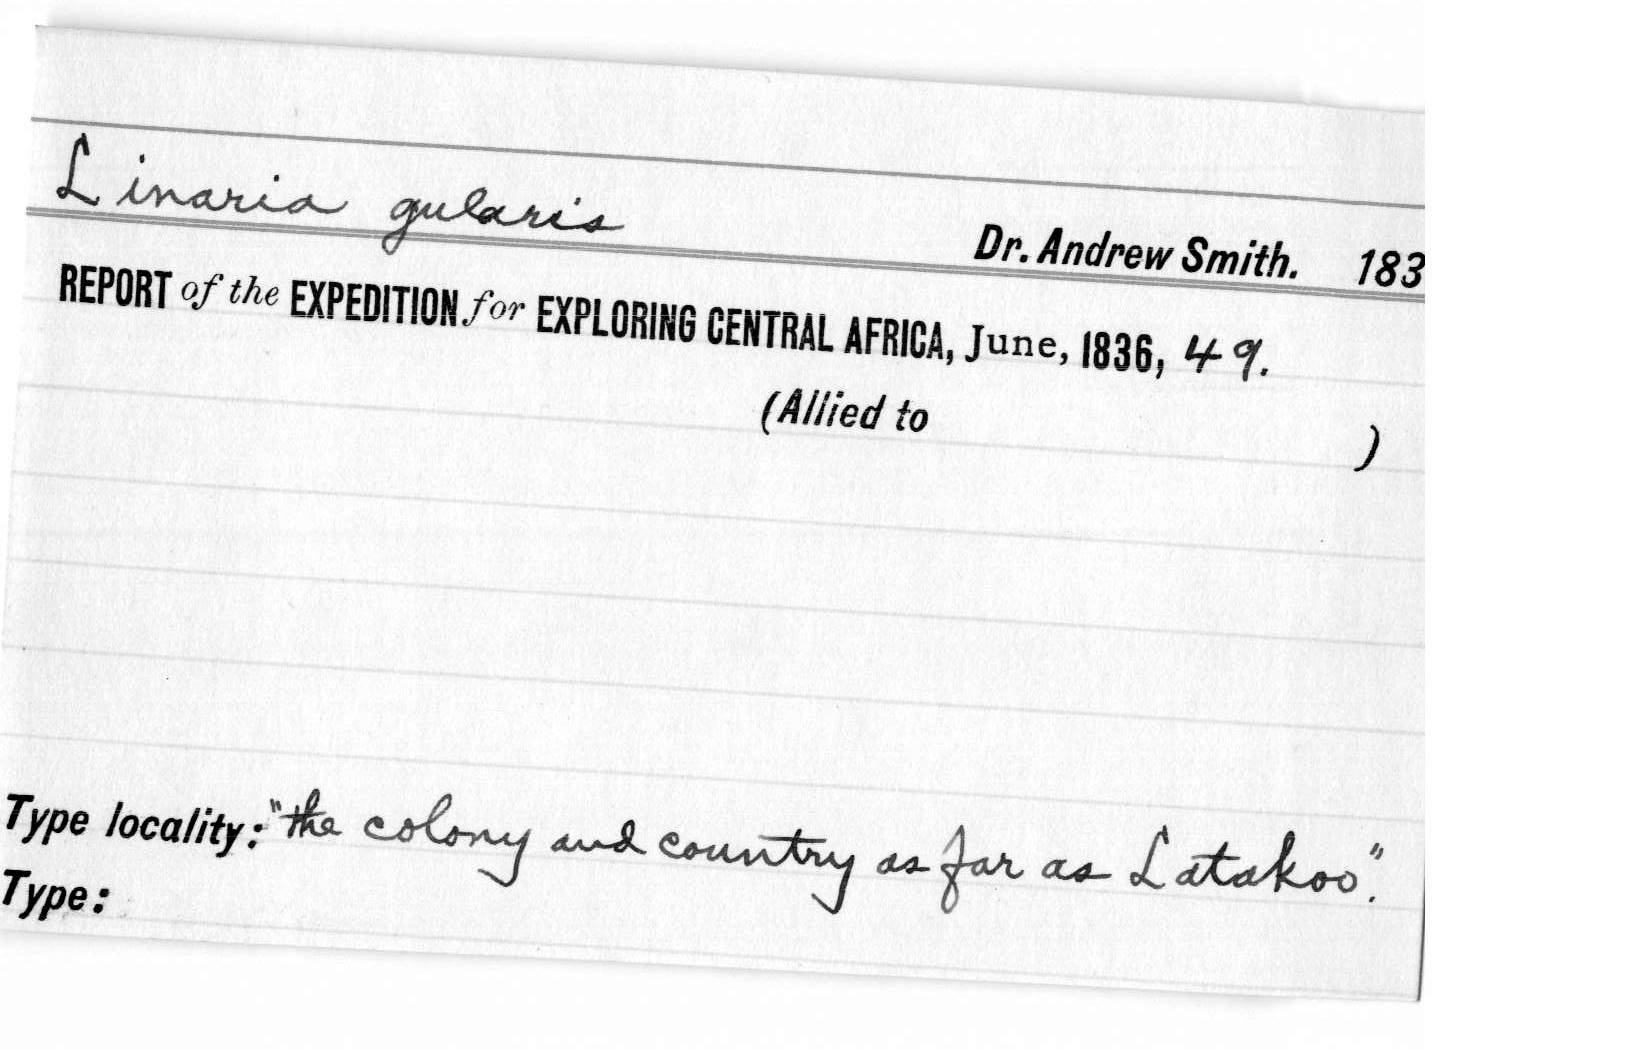 Linaria gularis
Dr. Andrew Smith. 183
REPORT of the EXPEDITION for EXPLORING CENTRAL AFRICA, June, 1836, 49.
(Allied to )
Type locality: "the colony and country as far as Latakoo".
Type: